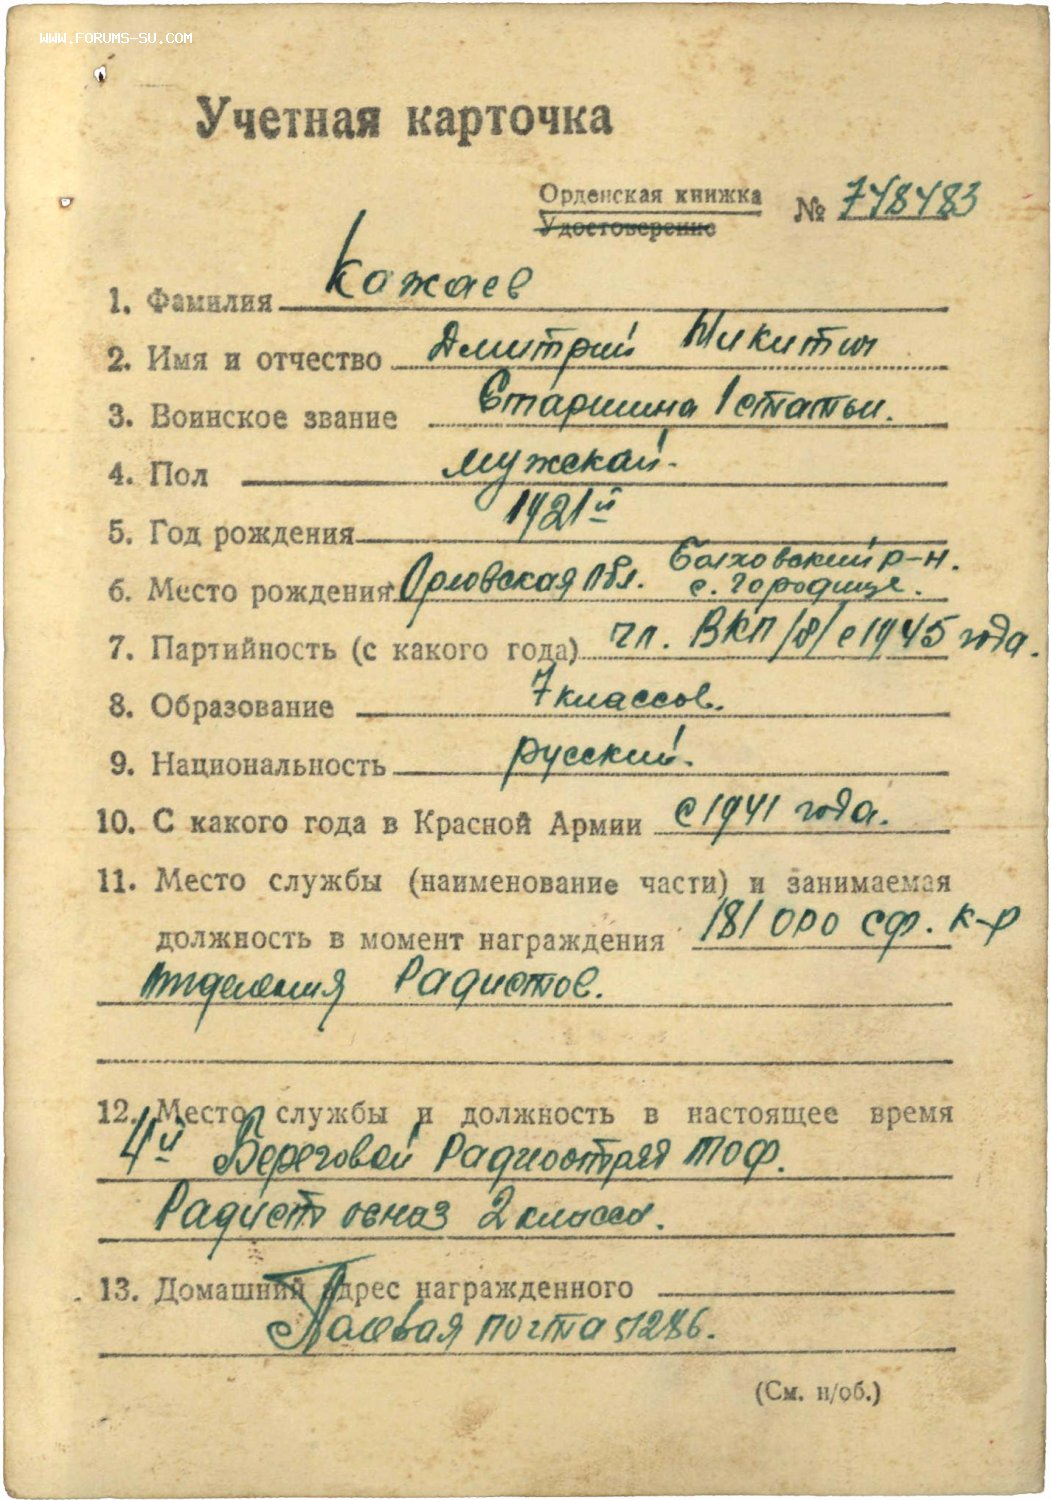 WWW.FORUMS-SU.COM
Учетная карточка
Орденская книжка
Удостоверение
№ 748483
1. Фамилия Кажаев
2. Имя и отчество Дмитрий Никитич
3. Воинское звание Старшина 1 статьи.
4. Пол мужской.
5. Год рождения 1921й
6. Место рождения Орловская обл. Болховский р-н. с. Городище.
7. Партийность (с какого года) чл. ВКП/б/ с 1945 года.
8. Образование 7 классов.
9. Национальность русский.
10. С какого года в Красной Армии с 1941 года.
11. Место службы (наименование части) и занимаемая
должность в момент награждения 181 ОРО СФ. К-р
отделения Радистов.
12. Место службы и должность в настоящее время
4й Береговой Радиоотряд ТОФ.
Радист осназ 2 класса.
13. Домашний адрес награжденного
Полевая почта 51286.
(См. н/об.)